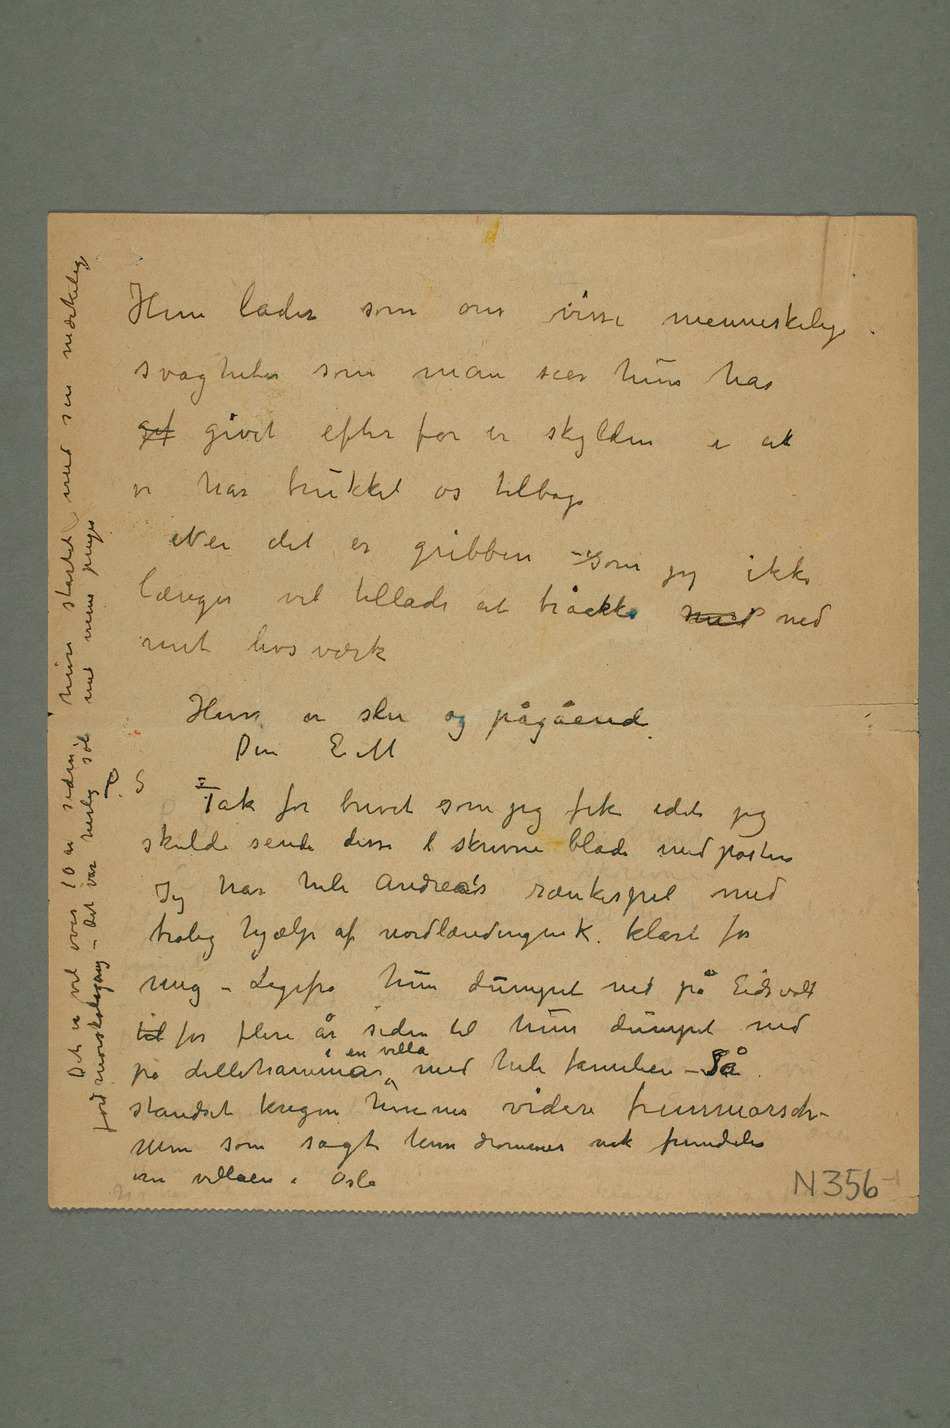 Hun lader som om visse menneskelige
svagheter som man seer hun har
gif givet efter for er skylden i at
vi har trukket os tilbage
Nei det er gribben – som jeg ikke
længer vil tillade at trække med ned
mit livsværk
Hun er slu og pågående.
Din E M
P. S Tak for brevet som jeg fik idet jeg
skulde sende disse skrevne blade med posten
Jeg har hele Andrea's rænkespil med
trolig hjælp af nordlændingen K. klart for
mig – Ligefra hun dumpet ned på Eidsvold
til for flere år siden til hun dumpet ned
på Lillehammer i en villa med hele familien – Så
standset krigen hennes videre fremmarsch –
Men som sagt hun drømmer nok fremdeles
om villaen i Oslo
Det er vel over 10 år siden hun startet med sin mærkelig
jordmorskolegang – Det var heslig søl med mine penger
N 356